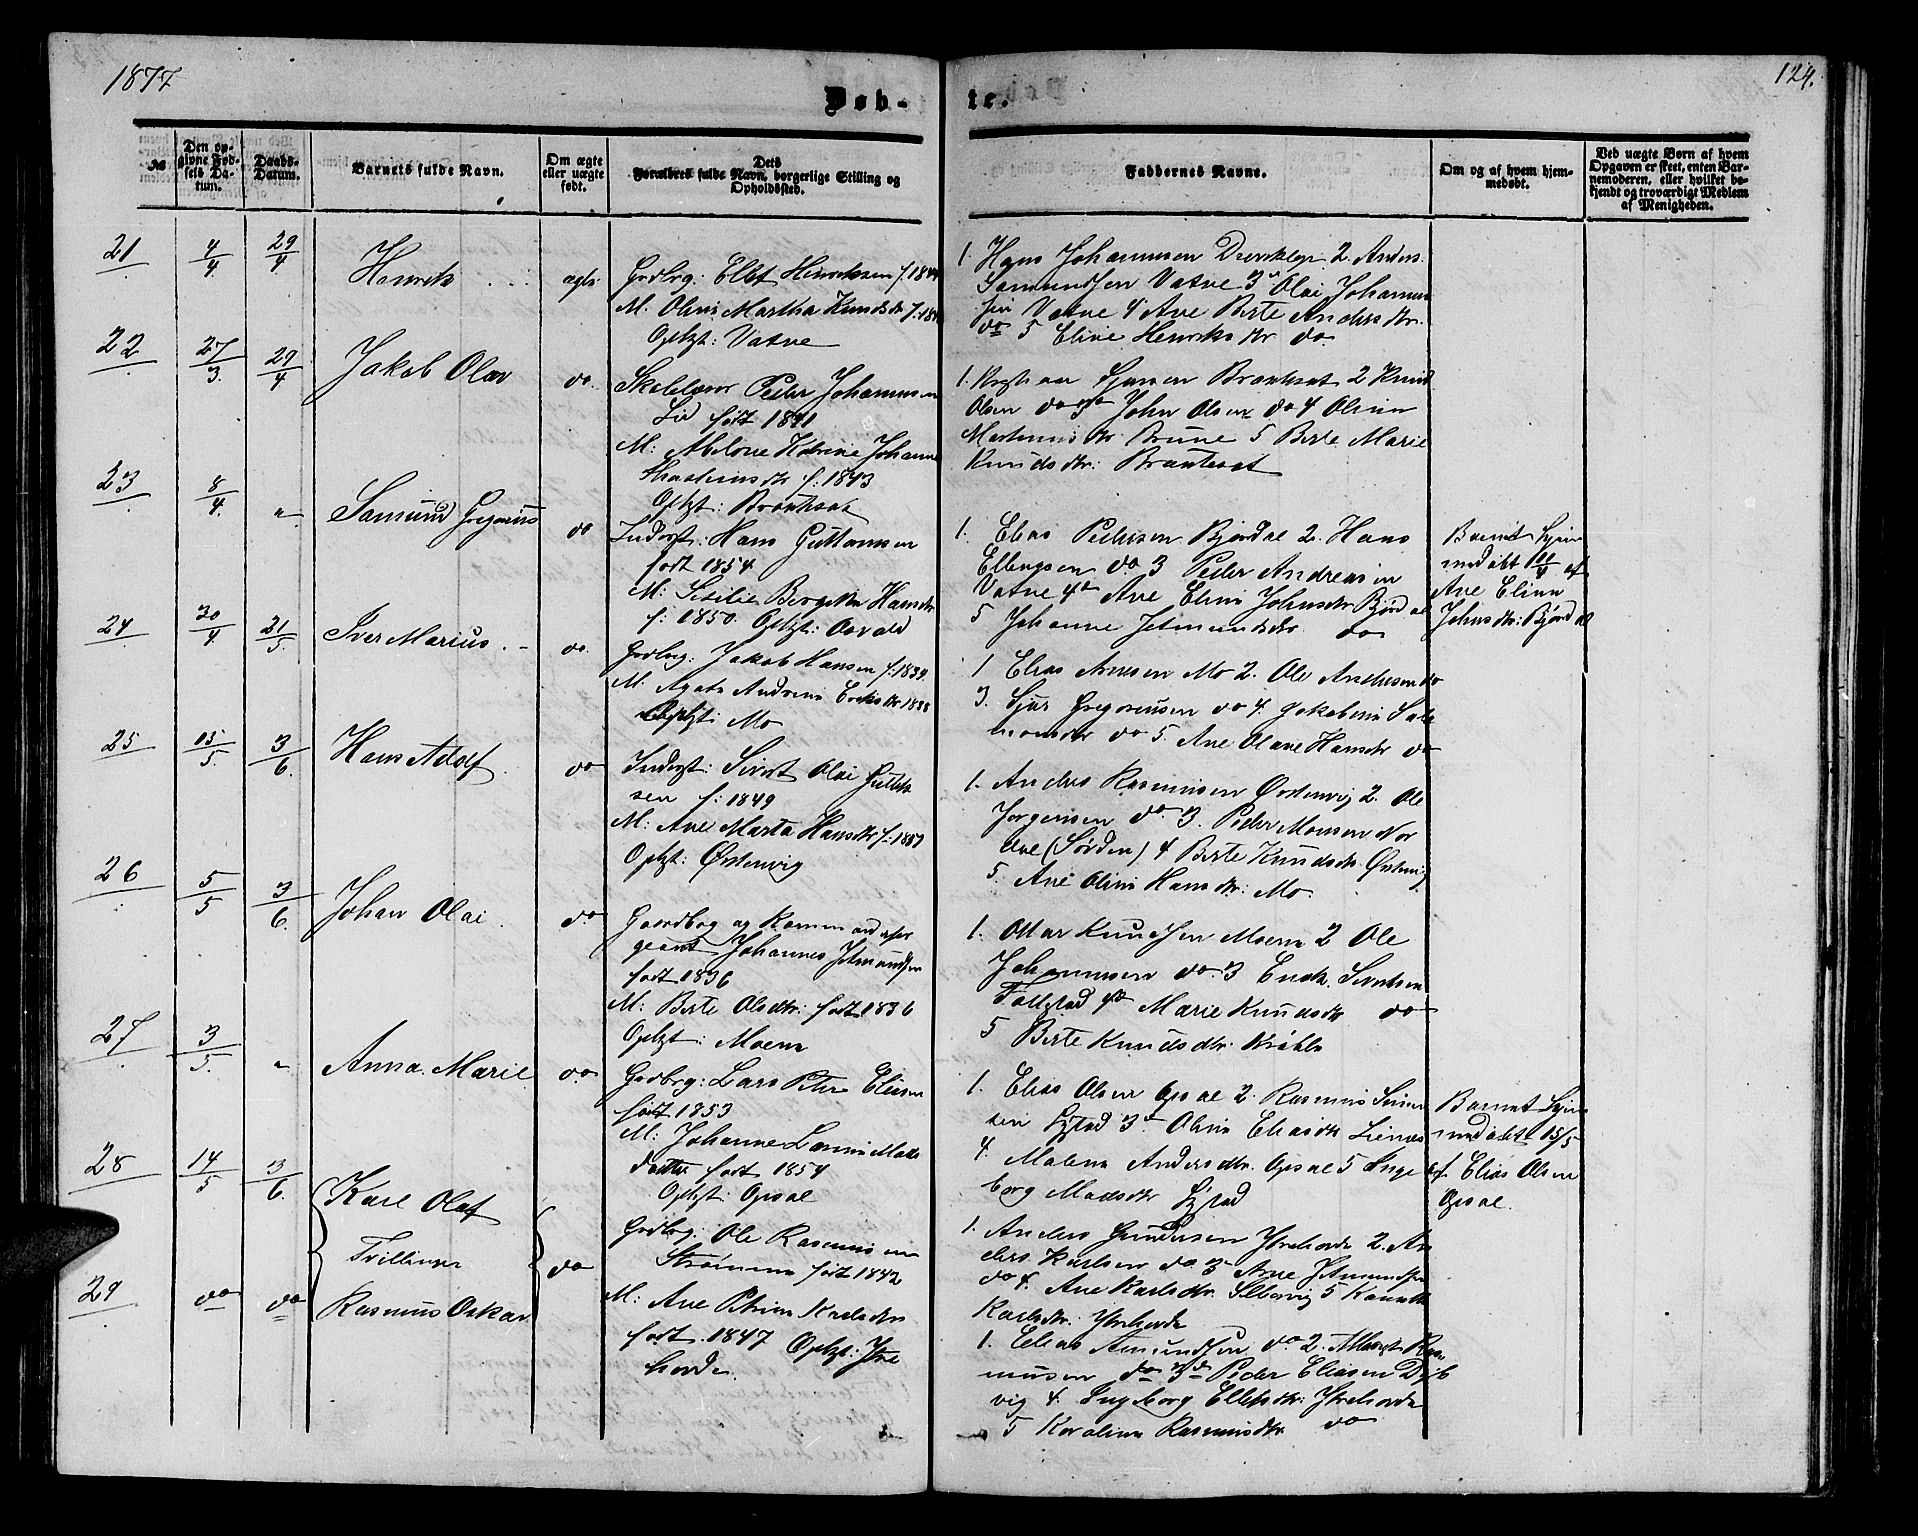 1877
124.
Døb-
te.
№
Den opgivne Fødsels Datum.
Daabs-Datum.
Barnets fulde Navn.
Om ægte eller uægte født.
Forældres fulde Navn, borgerlige Stilling og Opholdssted. Dets
Faddernes Navne.
Om og af hvem hjemmedøbt.
Ved uægte Børn af hvem Opgaven er skeet, enten Barnemoderen, eller hvilket bekjendt og troværdigt Medlem af Menigheden.
21 4/4 29/4 Henrik ægte
Grdbrg: Ellet Henriksen f.
M: Oline Martha Knudsdtr f.
Oplzt: Vatne
1. Hans Johannesen 2. Anders
Samundsen Vatne 3 Olai Johannes
sen Vatne 4 Ane Berte Andersdtr.
do 5 Eline Henriksdtr do.
22 27/3. 29/4 Jakob Olav do.
Skolelærer Peder Johannesen
Lid født 1841
M: Abelone Katrine Johanne
Thorsteinsdtr f: 1843
Oplzt: Brauteset
1. Sjursen Brauteset 2 Knud
Olsen do 3 John Olsen do 4 Oline
Martinusdtr Brune 5 Berte Marie
Knudsdtr: Brauteset
23 8/4. " Samund Gregorius do
Inderst: Hans Guttormsen
født 1854
M: Sesilie Bergitta Hansdtr
f: 1850. Oplzt: Aavald
1. Elias Pedersen Bjørdal 2. Hans
Ellengsen do 3 Peder Andreassen
Vatne 4 Ane Eline Johnsdtr Bjørdal
5 Johanne Jetmundsdtr do
Barnet hjem
medøbt 11/4 af
Ane Eline
Johnsdtr: Bjørdal
24 30/4. 21/5. Iver Marius. do.
Grdbrg: Jakob Hansen f: 1839
M: Agate Andrine Eriksdtr
Oplzt: Mo
1 Elias Arnesen Mo 2. Ole Andersen do
3. Sjur Gregoriusen do 4. Jakobine Salo
monsdtr do 5. Ane Olave Hansdtr do
25 15/5. 3/6. Hans Adolf do
Inderst: Sivert Olai Gullik
sen f: 1849
M: Ane Marta Hansdtr f:
Oplzt: Østenvig
1. Anders Rasmusen Østenvig 2. Ole
Jørgensen do 3. Peder Monsen Nor
dre (Sørden) 4 Berte Knudsdtr Østenvig
5. Ane Oline Hansdtr: Mo.
26 5/5 3/6. Johan Olai. do
Gaardbrg og Kommandersер
geant Johannes Jetmundsen
født 1836
M: Berte Olsdtr: født 1836
Oplzt: Moene
1. Ottar Knudsen Moene 2 Ole
Johannesen do 3 Endr. Sivertsen
Folkstad 4 Marie Knudsdtr do
5 Berte Knudsdtr.
27 3/5. " Anna Marie do
Grdbrg: Lars Peter Eliasen
født 1853
M: Johanne Lovise Mads
datter født 1854
Oplzt: Opsal
1. Elias Olsen Opsal 2. Rasmus Iver
sen 3 Oline Eliasdtr
4. Malene Andersdtr. Opsal 5 Inge
borg Madsdtr
Barnet hjem
medøbt 15/5
af Elias Olsen
Opsal.
28 14/5 3/6. Karl Olaf
Tvillinger do
29 do do Rasmus Oskar
Grdbrg. Ole Rasmusen
Strømmen født 1842
M: Ane Petrine Karlsdtr
født 1847 Oplzt: Ytre
horde.
1. Anders Gundersen Ytrehorde 2. An
ders Karlsen do 3 Arne Jetmundsen
do 4. Ane Karlsdtr. 5
Karlsdtr: Ytrehorde
1. Elias Amundsen do 2. Albregt Ras
musen do 3 Peder Eliasen Dyb
vig 4. Ingeborg Ellensdtr: Ytrehorde
5 Karoline Rasmusdtr do